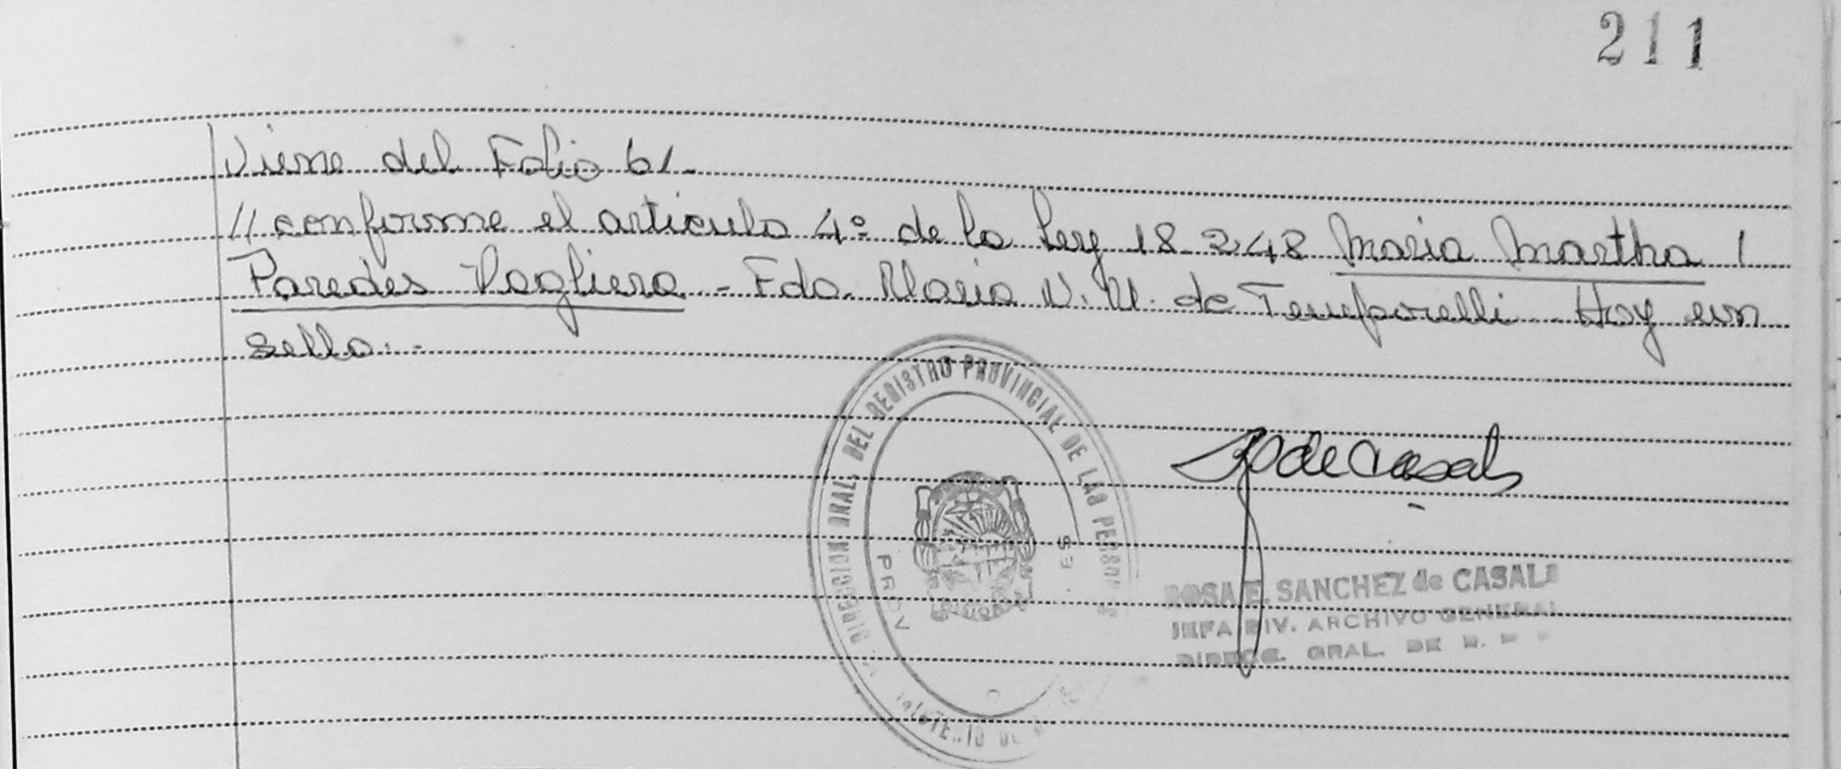 211
Viene del Folio 61.-
// conforme el articulo 4º de la ley 18.248 Maria Martha /
Paredes Vogliero - Fdo. Maria N. M. de Temporelli. Hay un
sello.-
DIRECCION GRAL. DEL REGISTRO PROVINCIAL DE LAS PERSON S
PROV
R de Casals
ROSA E. SANCHEZ de CASALS
JEFA DIV. ARCHIVO GENERAL
DIRECC. GRAL. DE R. P